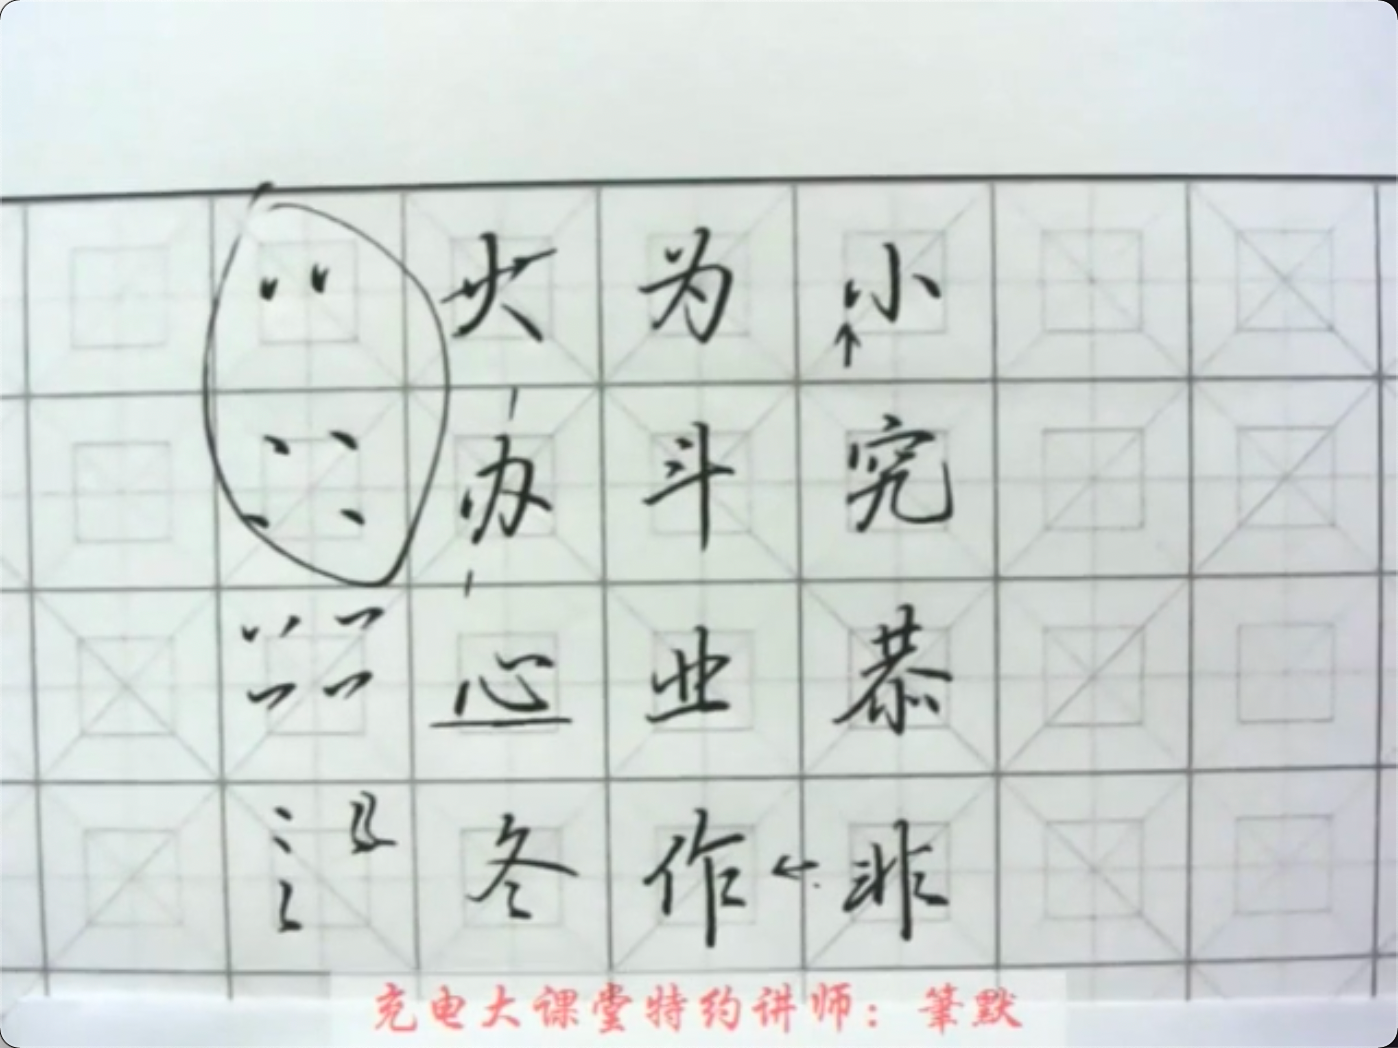 为 小
办 斗 究
心 业 恭
冬 作 非
充电大课堂特约讲师：筆默